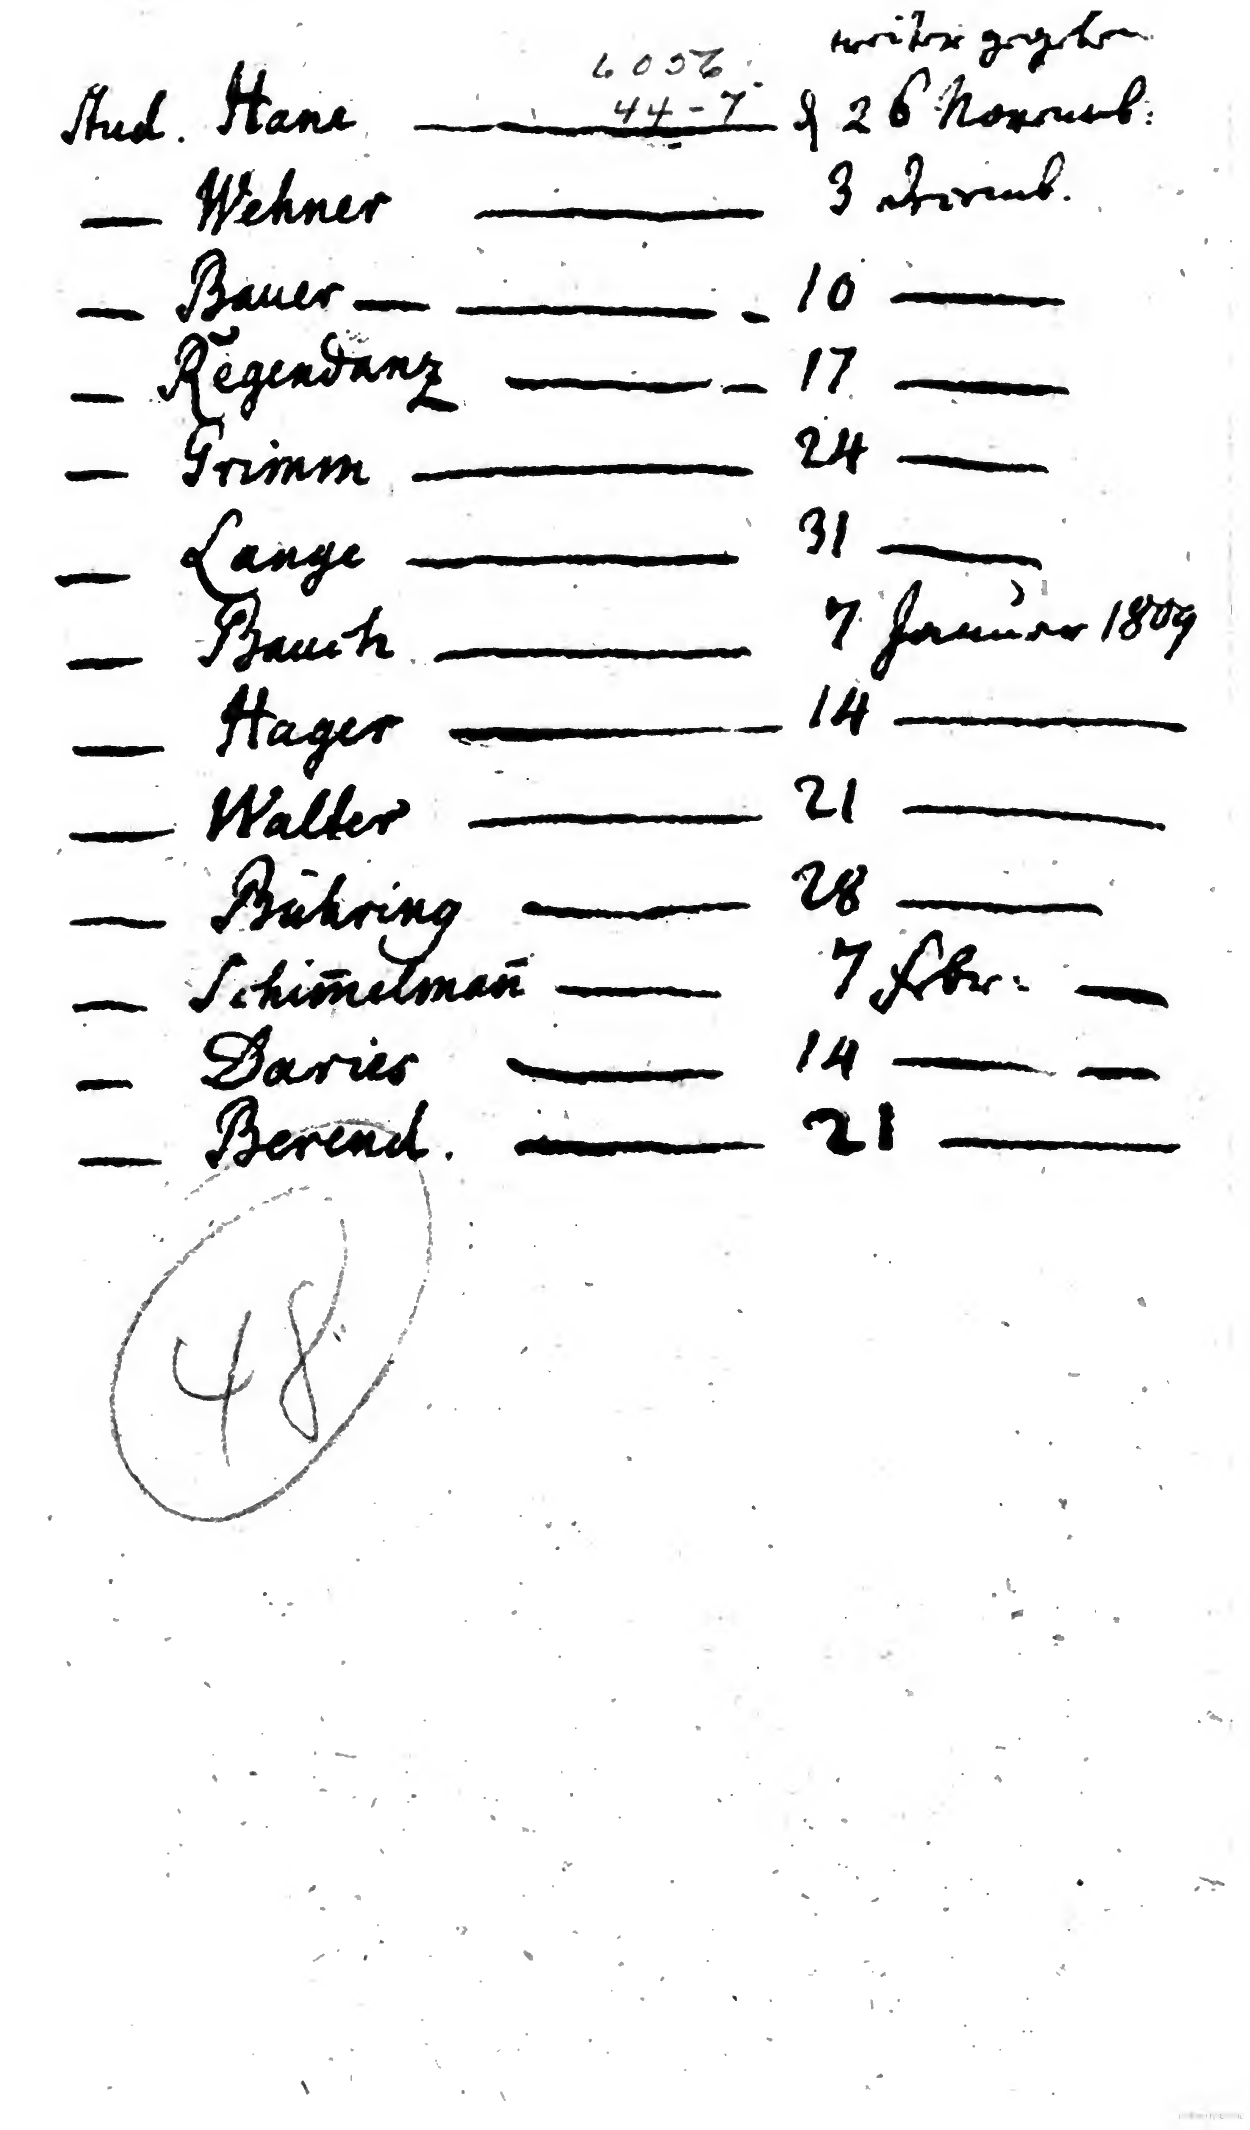 weiter gegeben
6056
44-7
Stud. Hane — d 26 Novemb:
— Wehner — 3 Decemb.
— Bauer — — - 10 —
— Regendanz — - 17 —
— Grimm — 24 —
— Lange — 31 —
— Bauch — 7 Januar 1809
— Hager — 14 —
— Walter — 21 —
— Bühring — 28 —
— Schim̅elman̅ — 7 Febr: —
— Daries — 14 — —
— Berend. — 21 —
48